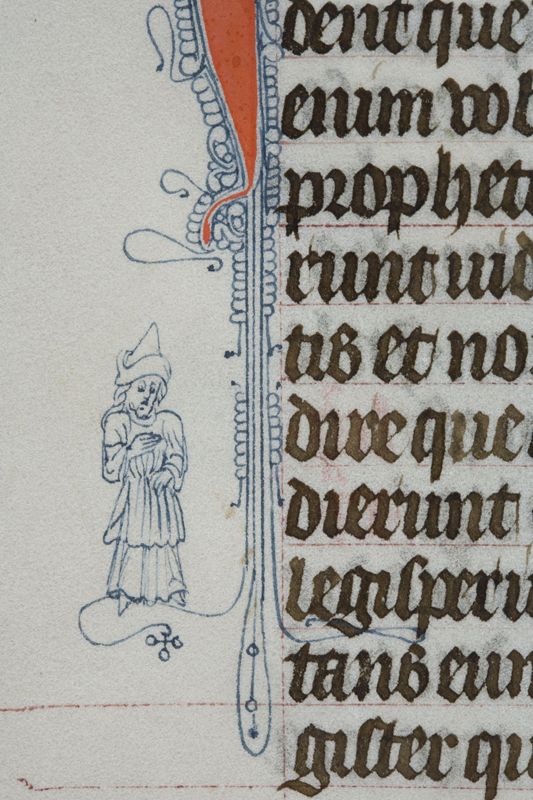 dent que
enim vol
prophete
runt uid
tis et no
dire que
dierunt
legisperi
tans eum
gister qu